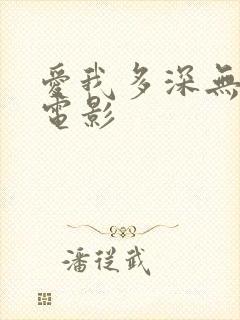 愛我多深無
電影
潘從武